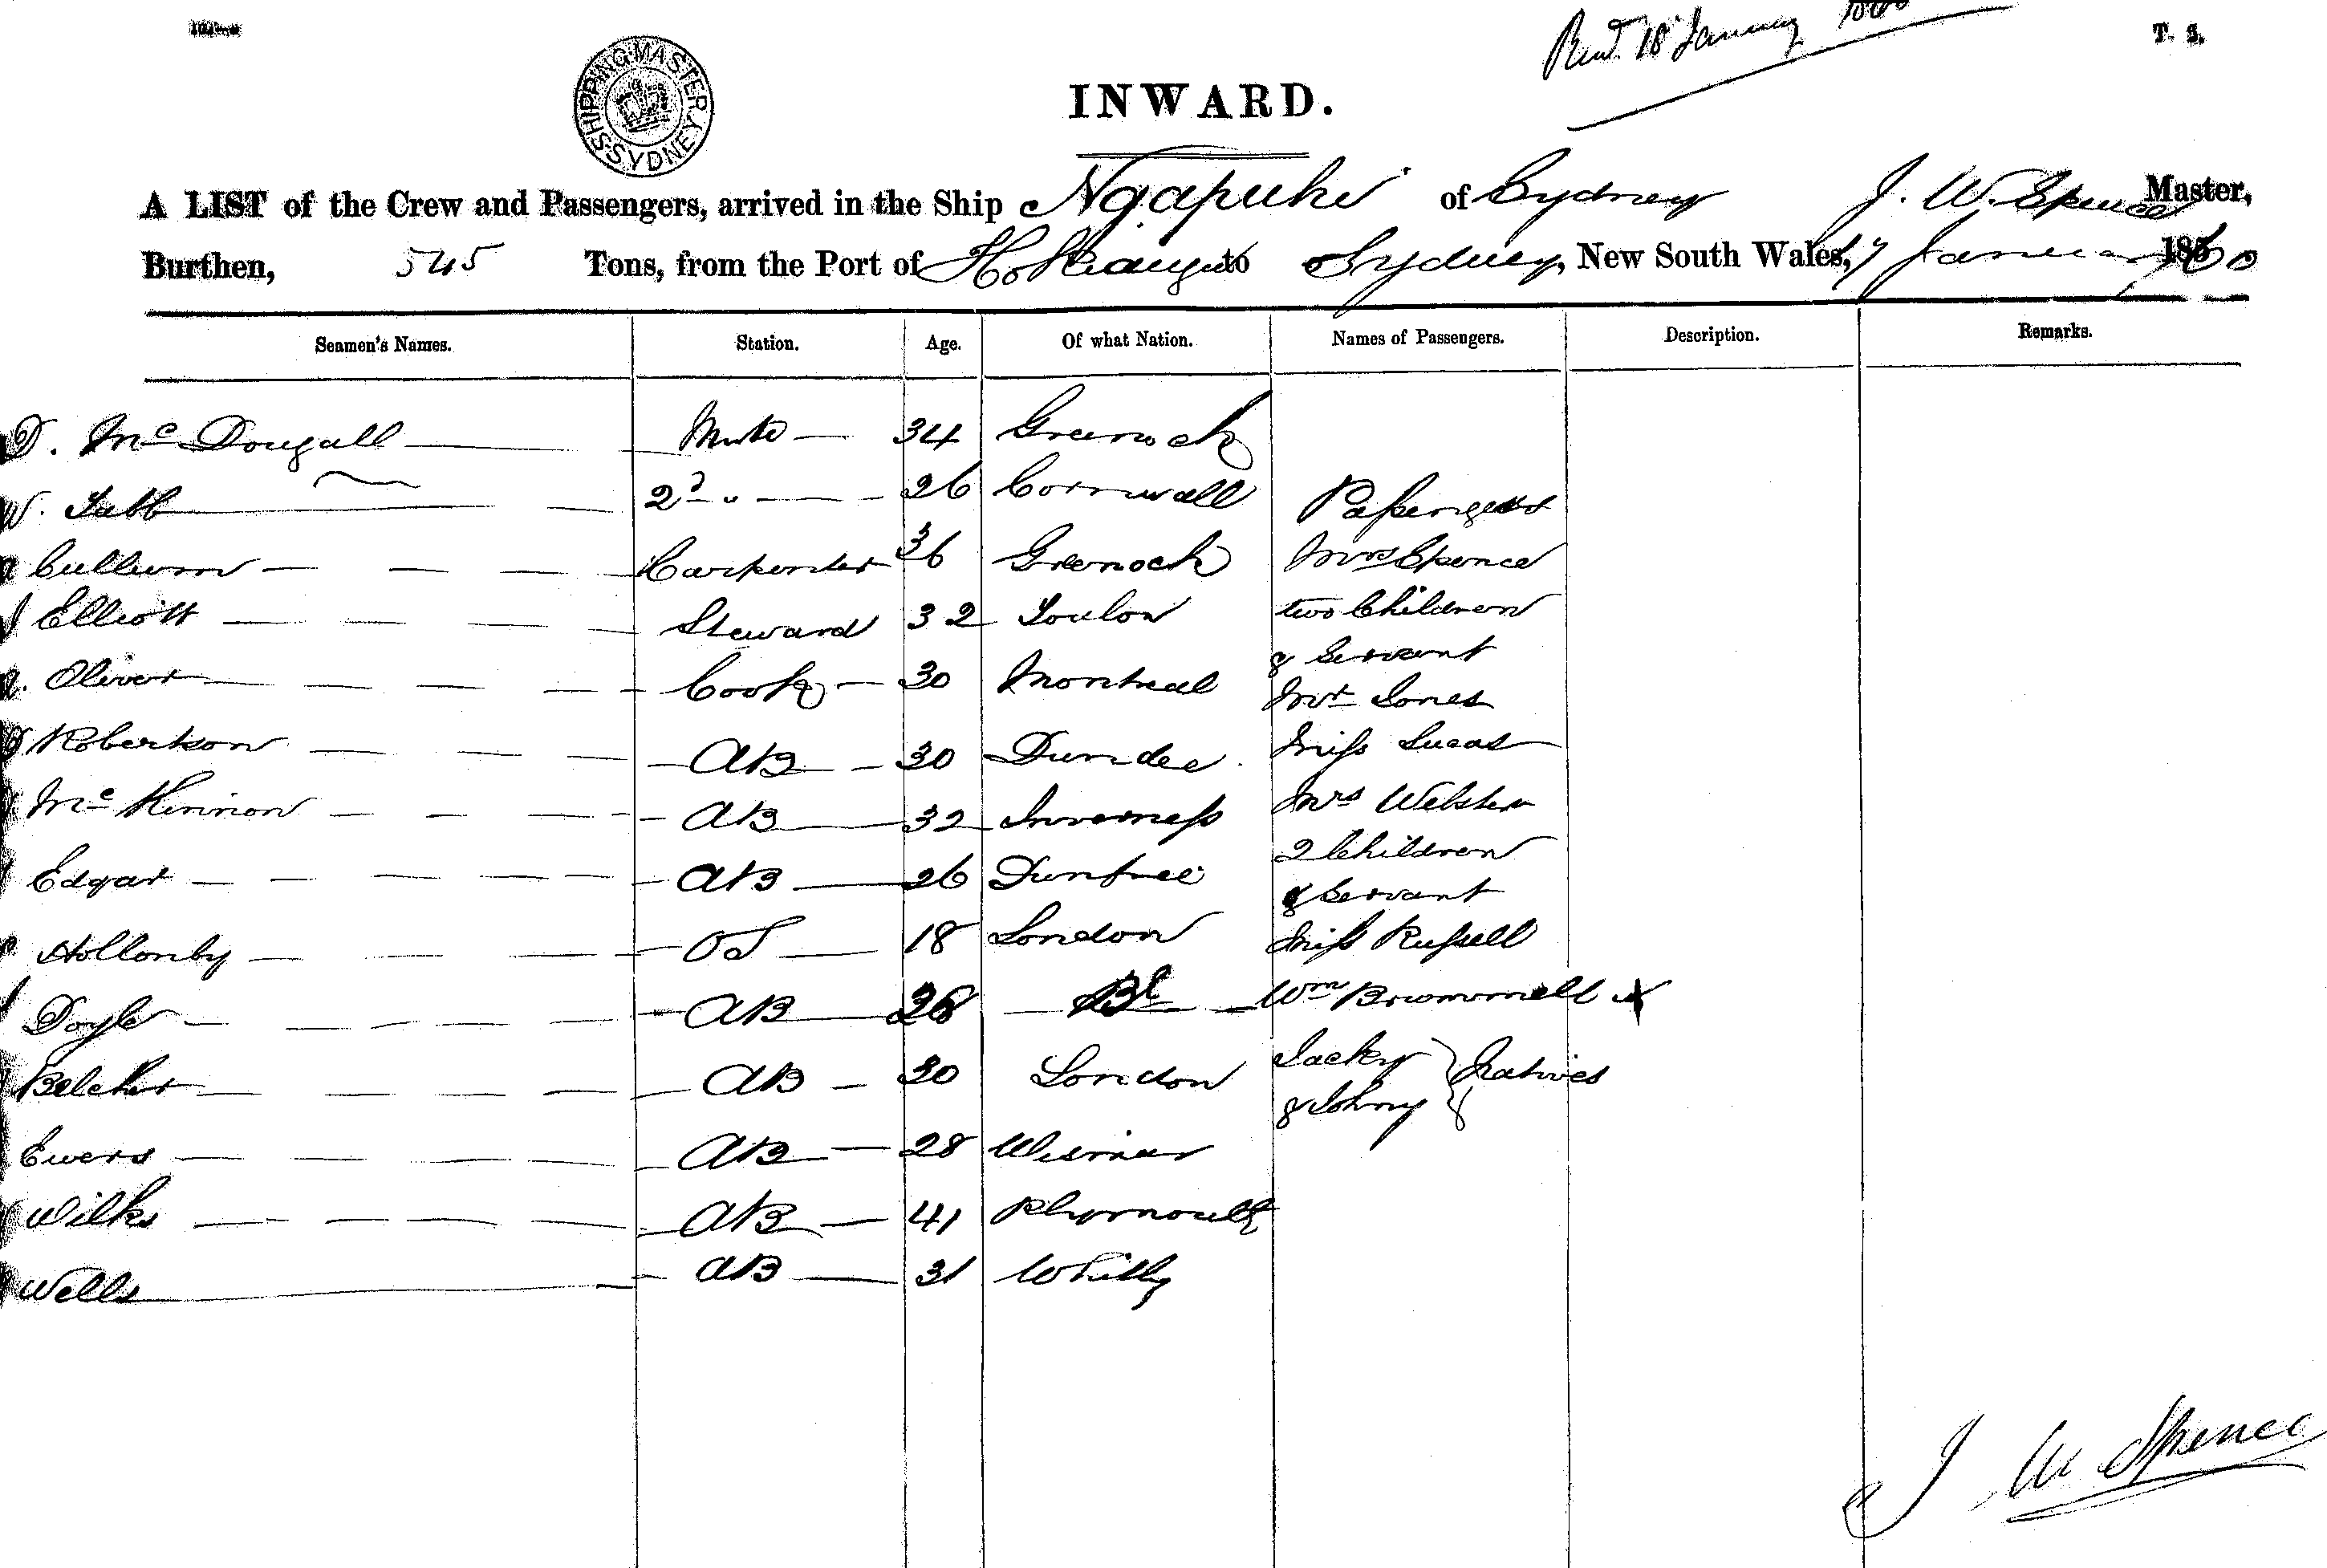 Recd. 18 January
T. S.
SHIPPING MASTER SYDNEY
INWARD.
A LIST of the Crew and Passengers, arrived in the Ship Ngapuhi of Sydney J. W. Spence Master,
Burthen, 545 Tons, from the Port of Hokianga to Sydney, New South Wales, 17 January 1860
Seamen's Names. Station. Age. Of what Nation. Names of Passengers. Description. Remarks.
D. Mc Dougall Mate 34 Greenock
W. Tabb 2d " 26 Cornwall Passengers
Cullum Carpenter 36 Grenock Mrs Spence
Elliott Steward 32 Toulon two Children
& Servant
Oliver Cook 30 Montreal Mr Jones
Robertson AB 30 Dundee Miss Lucas
Mc Kinnon AB 32 Inverness Mrs Webster
2 Children
Edgar AB 26 & Servant
Hollonby OS 18 London Miss Russell
Doyle AB Wm Brownmell x
Belcher AB 30 London Jacky } Natives
& Johny }
Ewers AB 28 Wismar
Wilks AB 41 Plymouth
Wells AB 31 Whitby
J W Spence